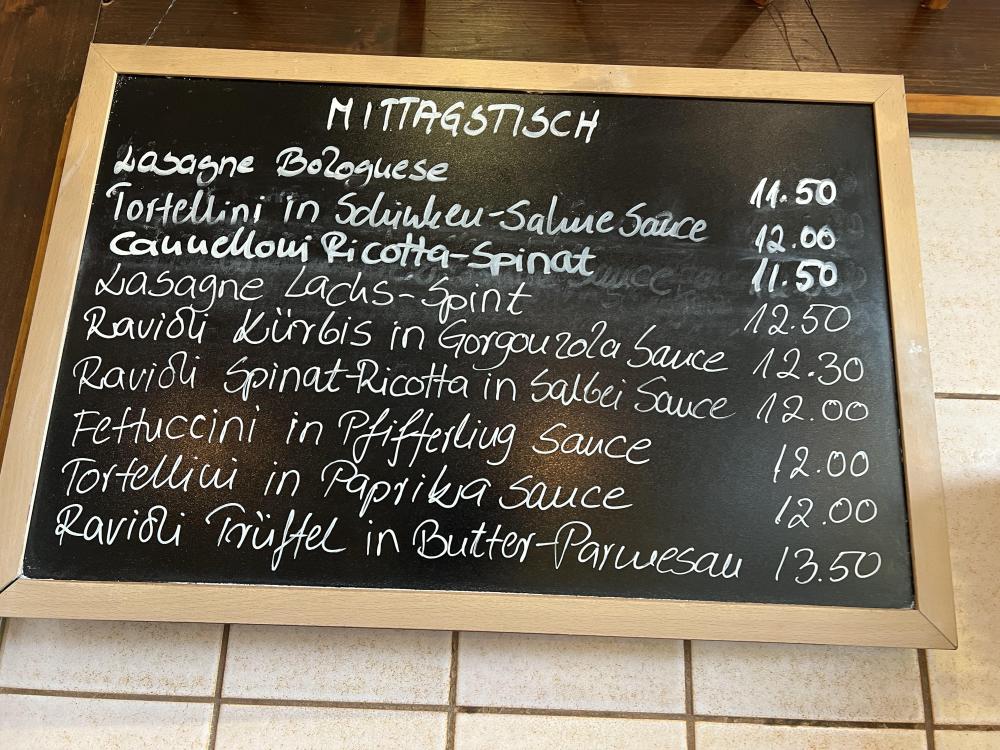 MITTAGSTISCH
Lasagne Bolognese 11.50
Tortellini in Schinken-Sahne Sauce 12.00
Cannelloni Ricotta-Spinat 11.50
Lasagne Lachs-Spint 12.50
Ravioli Kürbis in Gorgonzola Sauce 12.30
Ravioli Spinat-Ricotta in Salbei Sauce 12.00
Fettuccini in Pfifferling Sauce 12.00
Tortellini in Paprika Sauce 12.00
Ravioli Trüffel in Butter-Parmesan 13.50